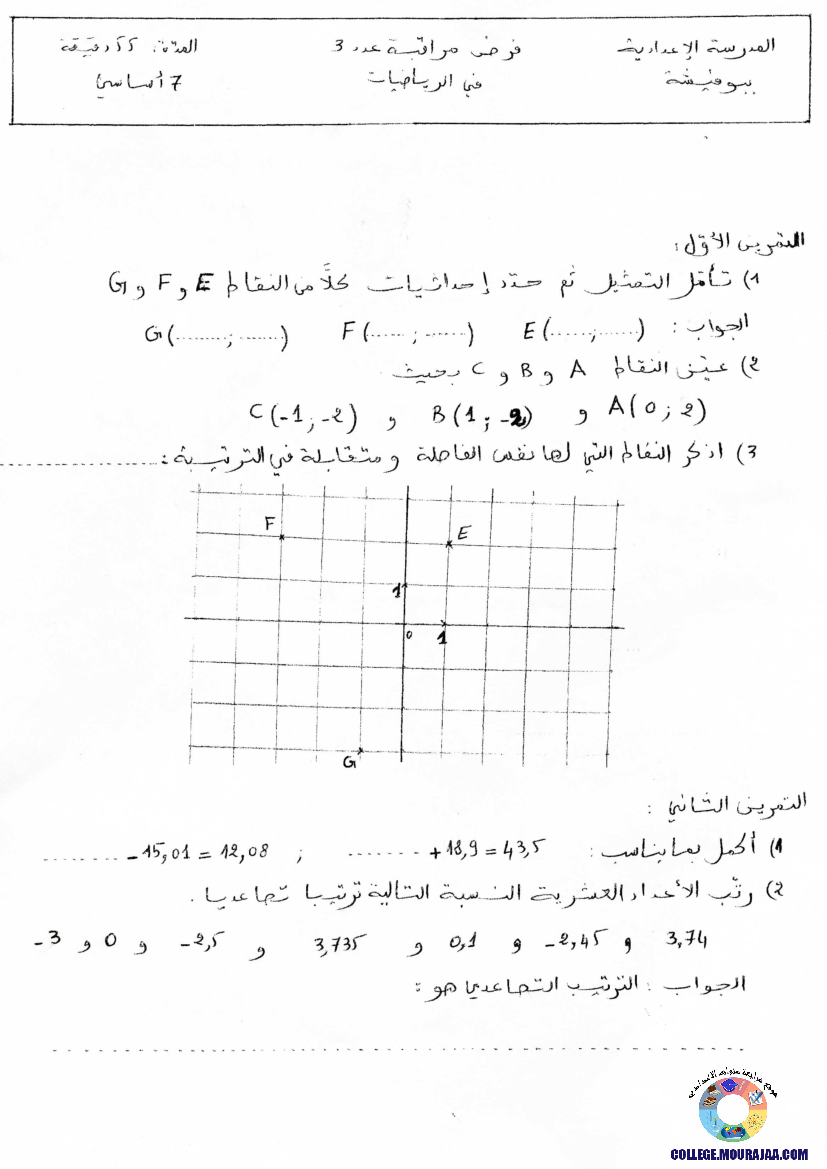 المدرسة الإعدادية ببوفيشة
فرض مراقبة عدد 3 في الرياضيات
المدّة: 55 دقيقة
7 أساسي
التمرين الأوّل:
1) تأمّل التمثيل ثم حدّد إحداثيات كلاّ من النقاط E و F و G
الجواب: E (......;......) F (......;......) G (........;.......)
2) عيّن النقاط A و B و C بحيث.
A(0;2) و B(1;-2) و C(-1;-2)
3) اذكر النقاط التي لها نفس الفاصلة ومتقابلة في الترتيبة: ....................
F
E
1
0
1
G
التمرين الثاني:
1) أكمل بما يناسب: ....... +18,9 = 43,5 ; ........ -15,01 = 12,08
2) رتّب الأعداد العشرية النسبية التالية ترتيبا تصاعديا.
3,74 و -2,45 و 0,1 و 3,735 و -2,5 و 0 و -3
الجواب: الترتيب التصاعدي هو:
موقع مراجعة
COLLEGE.MOURAJAA.COM